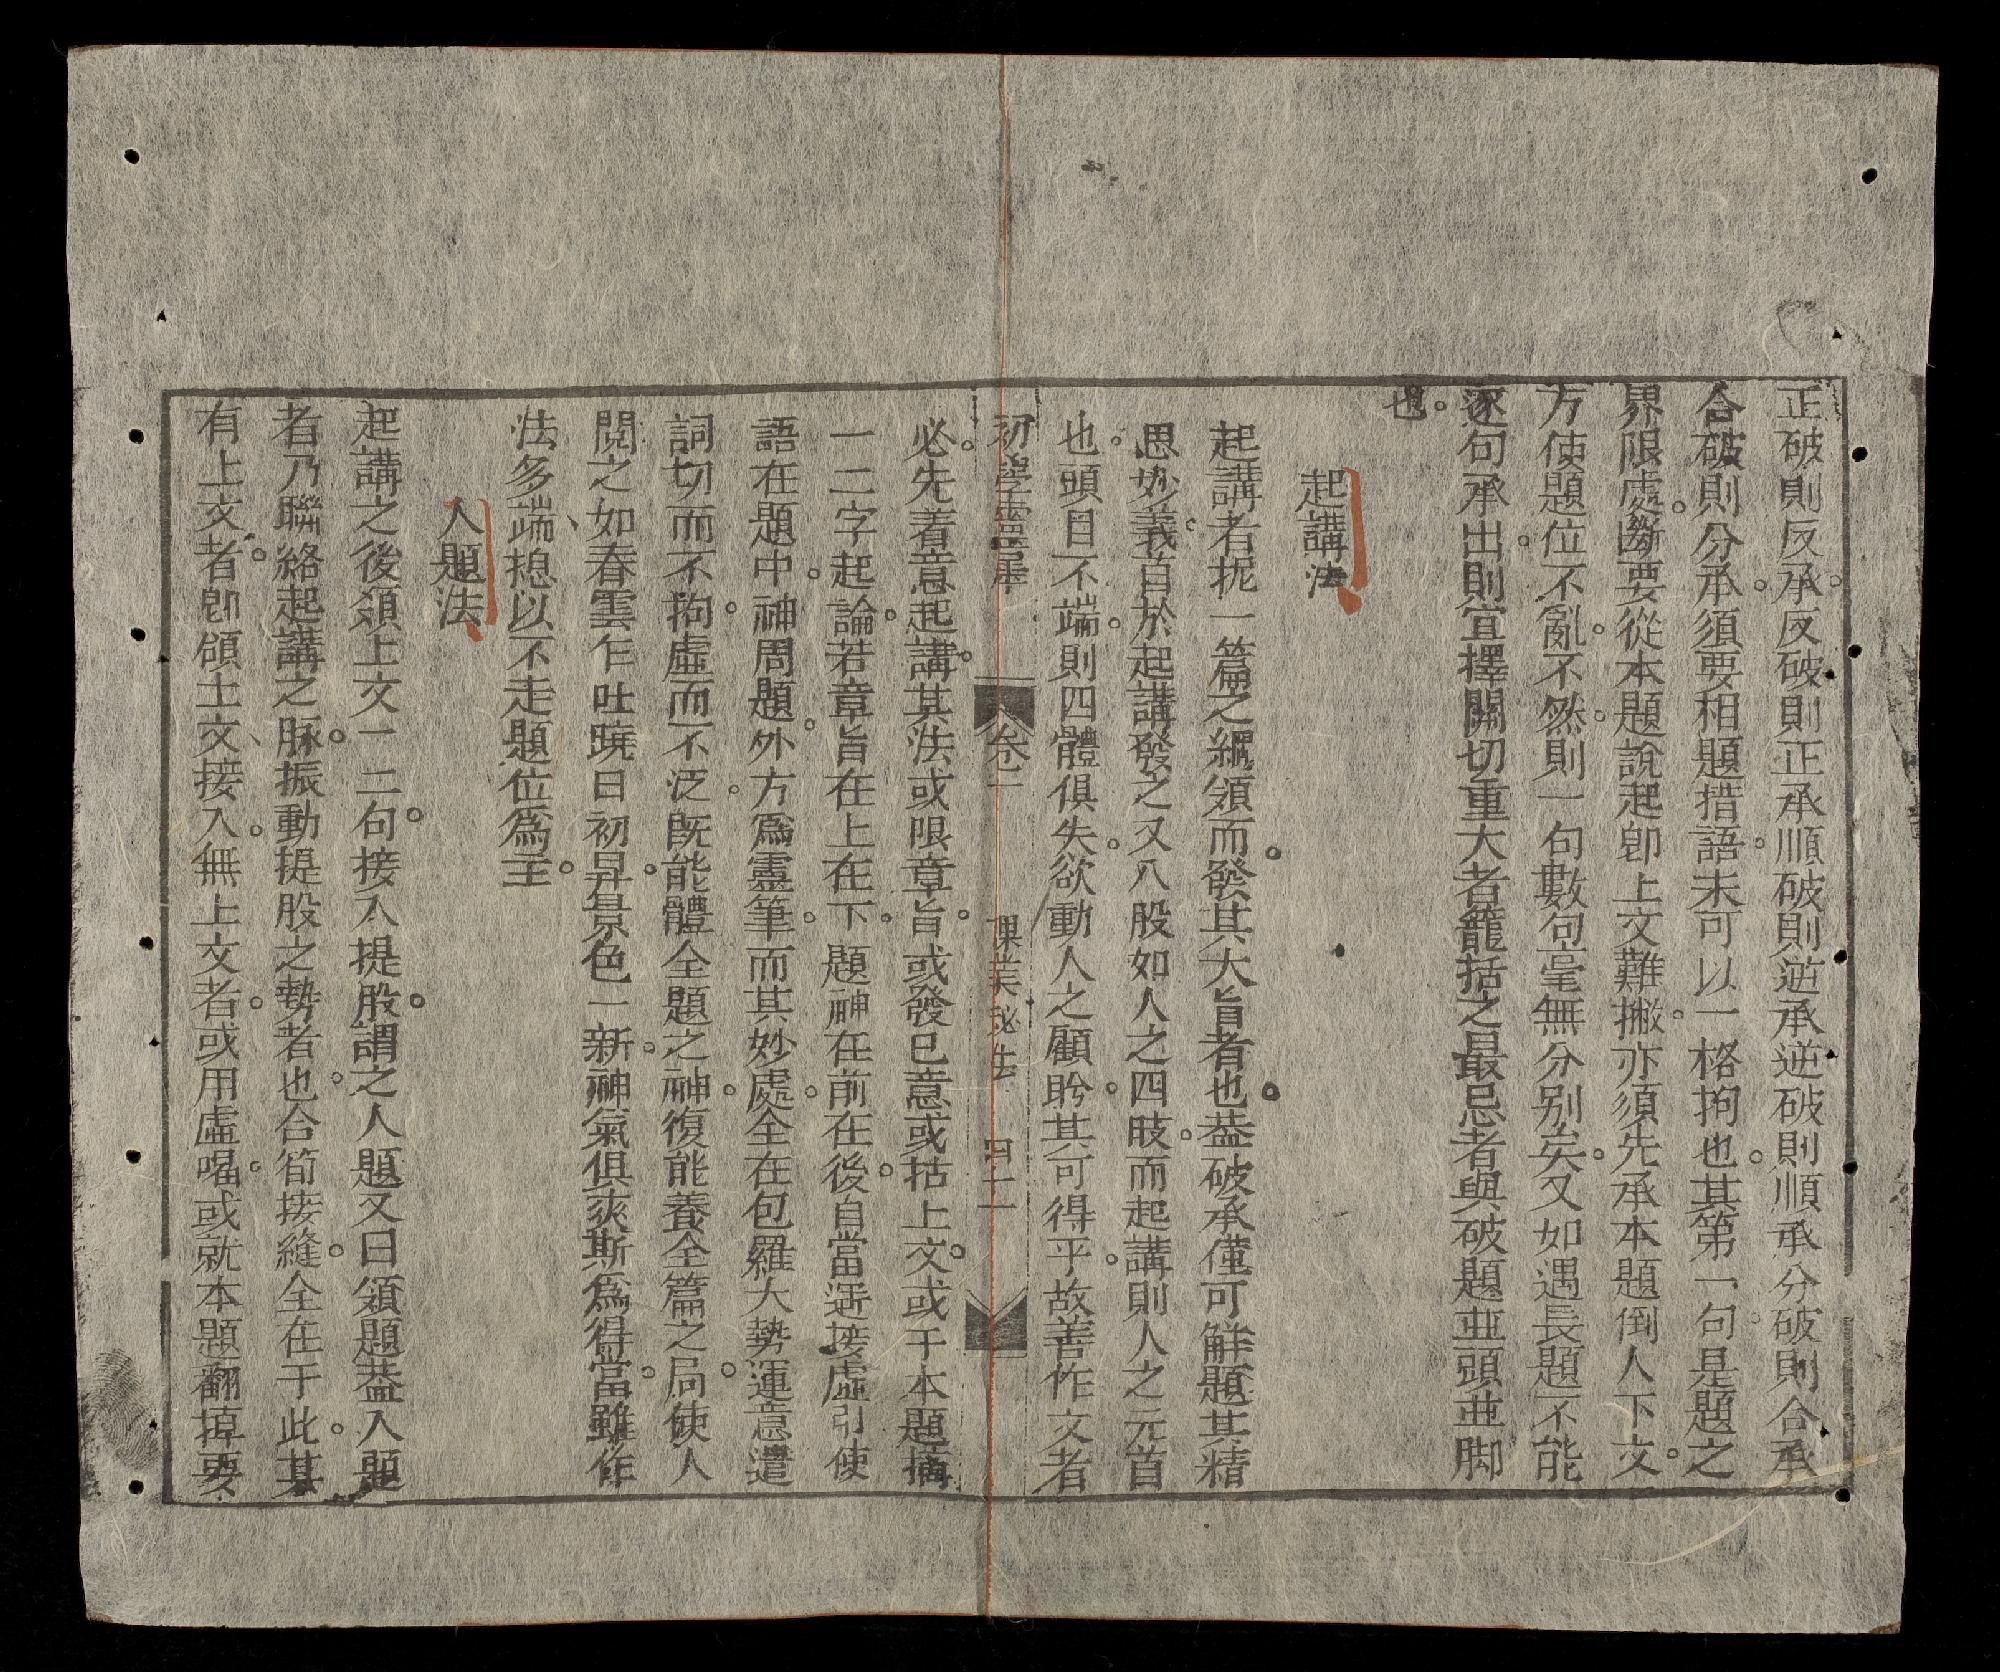 正破則反承反破則正承順破則逆承逆破則順承分破則合承
合破則分承須要相題措語未可以一格拘也其第一句是題之
界限處斷要從本題說起卽上文難撇亦須先承本題倒入下文
方使題位不亂不然則一句數句毫無分別矣又如遇長題不能
逐句承出則宜擇關切重大者籠括之最忌者與破題並頭並脚
也
起講法
起講者扼一篇之綱領而發其大旨者也葢破承僅可解題其精
思妙義首於起講發之又八股如人之四肢而起講則人之元首
也頭目不端則四體俱失欲動人之顧盼其可得乎故善作文者
初學靈犀 卷二 課業秘法
必先着意起講其法或限章旨或發已意或括上文或于本題摘
一二字起論若章旨在上在下題神在前在後自當遥接虛引使
語在題中神周題外方爲靈筆而其妙處全在包羅大勢運意遣
詞切而不拘虛而不泛旣能體全題之神復能養全篇之局使人
閱之如春雲乍吐曉日初昇景色一新神氣俱爽斯爲得當雖作
法多端摠以不走題位爲主
入題法
起講之後領上文一二句接入提股謂之入題又曰領題葢入題
者乃聯絡起講之脉振動提股之勢者也合筍接縫全在于此其
有上文者卽領上文接入無上文者或用虛喝或就本題翻掉要